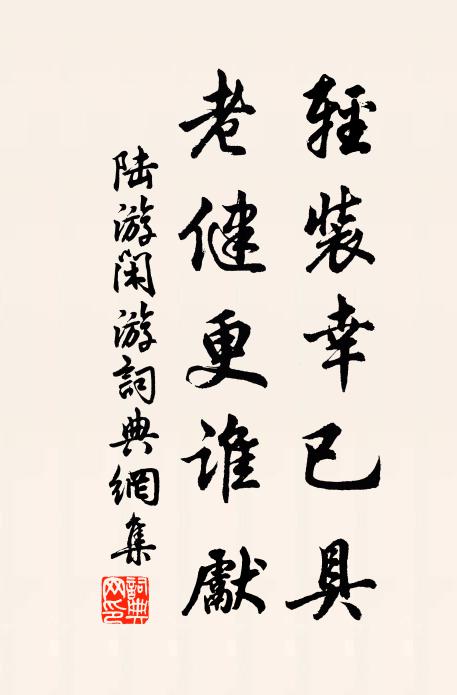 輕裝幸已具
老健更誰獻
陸游閑游詞典網集
詞典网印